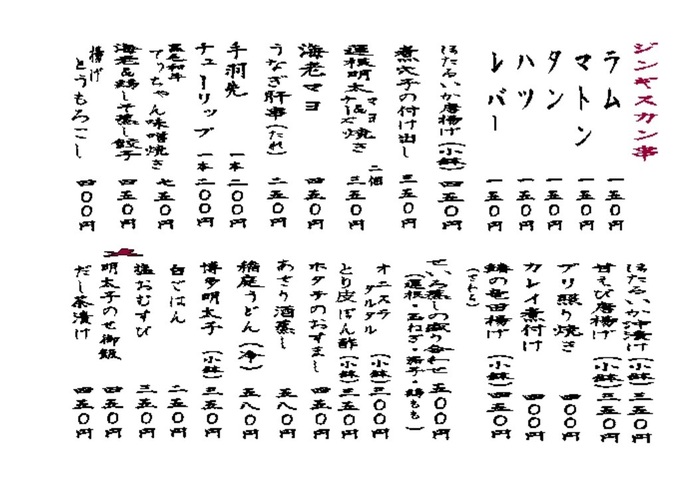 ジンギスカン串
ラム 一五〇円
マトン 一五〇円
タン 一五〇円
ハツ 一五〇円
レバー 一五〇円
ほたるいか唐揚げ（小鉢）四五〇円
煮穴子の付け出し 三五〇円
蓮根明太マヨチーズ焼き 二個 三五〇円
海老マヨ 四五〇円
うなぎ肝串（たれ）二五〇円
手羽先 一本 二〇〇円
チューリップ 一本 二〇〇円
黒毛和牛てっちゃん味噌焼き 七五〇円
海老&鶏しそ蒸し餃子 四五〇円
揚げとうもろこし 四〇〇円
ほたるいか沖漬け（小鉢）三五〇円
甘えび唐揚げ（小鉢）三五〇円
ブリ照り焼き 四〇〇円
カレイ煮付け 四〇〇円
鰆の竜田揚げ（小鉢）四五〇円
（さわら）
せいろ蒸しの盛り合わせ 五〇〇円
（蓮根・玉ねぎ・茄子・鶏もも）
オニスラタルタル（小鉢）三〇〇円
とり皮ぽん酢（小鉢）三五〇円
ホタテのおすまし 四五〇円
あさり酒蒸し 五八〇円
稲庭うどん（冷）五八〇円
博多明太子（小鉢）三五〇円
白ごはん 二五〇円
塩おむすび 三五〇円
明太子のせ御飯 四五〇円
だし茶漬け 四五〇円